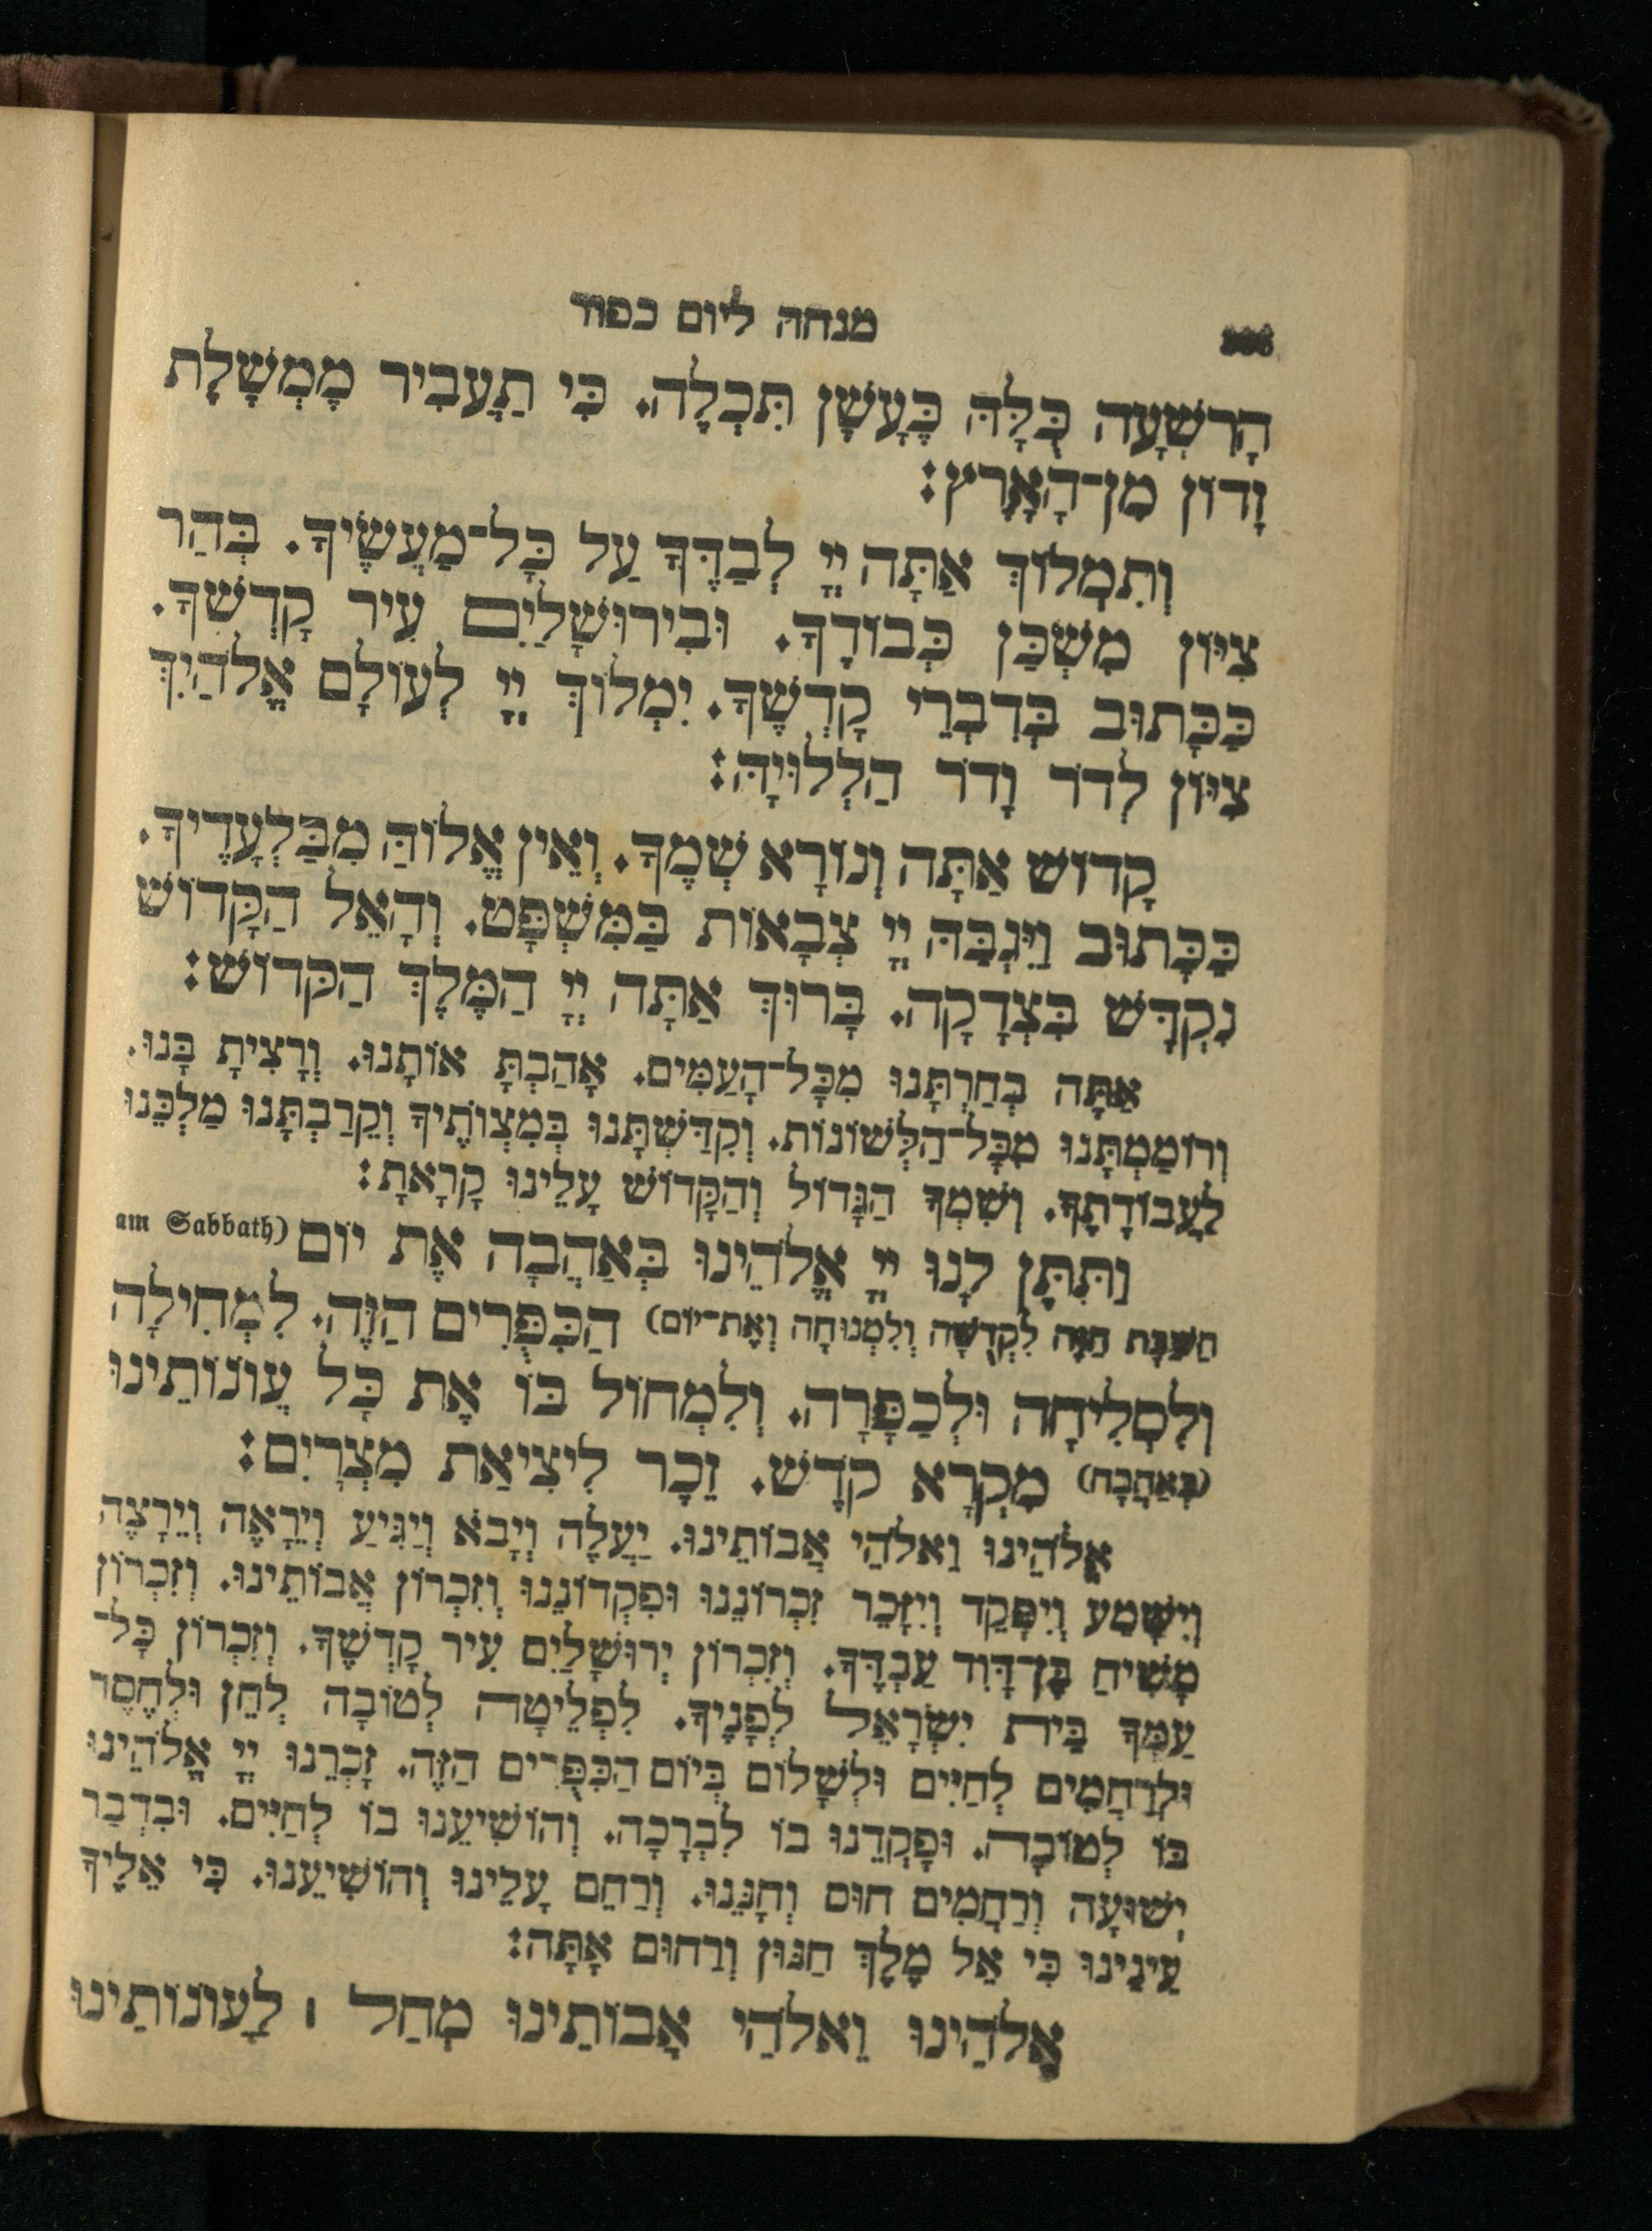 מנחה ליום כפור
הָרִשְׁעָה כֻּלָּהּ כֶּעָשָׁן תִּכְלֶה. כִּי תַעֲבִיר מֶמְשֶׁלֶת
זָדוֹן מִן־הָאָרֶץ:
וְתִמְלוֹךְ אַתָּה יְיָ לְבַדֶּךָ עַל כָּל־מַעֲשֶׂיךָ. בְּהַר
צִיּוֹן מִשְׁכַּן כְּבוֹדֶךָ. וּבִירוּשָׁלַיִם עִיר קָדְשֶׁךָ.
כַּכָּתוּב בְּדִבְרֵי קָדְשֶׁךָ. יִמְלוֹךְ יְיָ לְעוֹלָם אֱלֹהַיִךְ
צִיּוֹן לְדֹר וָדֹר הַלְלוּיָהּ:
קָדוֹשׁ אַתָּה וְנוֹרָא שְׁמֶךָ. וְאֵין אֱלוֹהַּ מִבַּלְעָדֶיךָ.
כַּכָּתוּב וַיִּגְבַּהּ יְיָ צְבָאוֹת בַּמִּשְׁפָּט. וְהָאֵל הַקָּדוֹשׁ
נִקְדָּשׁ בִּצְדָקָה. בָּרוּךְ אַתָּה יְיָ הַמֶּלֶךְ הַקָּדוֹשׁ:
אַתָּה בְחַרְתָּנוּ מִכָּל־הָעַמִּים. אָהַבְתָּ אוֹתָנוּ. וְרָצִיתָ בָּנוּ.
וְרוֹמַמְתָּנוּ מִכָּל־הַלְּשׁוֹנוֹת. וְקִדַּשְׁתָּנוּ בְּמִצְוֹתֶיךָ וְקֵרַבְתָּנוּ מַלְכֵּנוּ
לַעֲבוֹדָתֶךָ. וְשִׁמְךָ הַגָּדוֹל וְהַקָּדוֹשׁ עָלֵינוּ קָרָאתָ:
וַתִּתֶּן לָנוּ יְיָ אֱלֹהֵינוּ בְּאַהֲבָה אֶת יוֹם (am Sabbath
הַשַּׁבָּת הַזֶּה לִקְדֻשָּׁה וְלִמְנוּחָה וְאֶת־יוֹם) הַכִּפֻּרִים הַזֶּה. לִמְחִילָה
וְלִסְלִיחָה וּלְכַפָּרָה. וְלִמְחוֹל בּוֹ אֶת כָּל עֲוֹנוֹתֵינוּ
(בְּאַהֲבָה) מִקְרָא קֹדֶשׁ. זֵכֶר לִיצִיאַת מִצְרָיִם:
אֱלֹהֵינוּ וֵאלֹהֵי אֲבוֹתֵינוּ. יַעֲלֶה וְיָבֹא וְיַגִּיעַ וְיֵרָאֶה וְיֵרָצֶה
וְיִשָּׁמַע וְיִפָּקֵד וְיִזָּכֵר זִכְרוֹנֵנוּ וּפִקְדוֹנֵנוּ וְזִכְרוֹן אֲבוֹתֵינוּ. וְזִכְרוֹן
מָשִׁיחַ בֶּן־דָּוִד עַבְדֶּךָ. וְזִכְרוֹן יְרוּשָׁלַיִם עִיר קָדְשֶׁךָ. וְזִכְרוֹן כָּל־
עַמְּךָ בֵּית יִשְׂרָאֵל לְפָנֶיךָ. לִפְלֵיטָה לְטוֹבָה לְחֵן וּלְחֶסֶד
וּלְרַחֲמִים לְחַיִּים וּלְשָׁלוֹם בְּיוֹם הַכִּפֻּרִים הַזֶּה. זָכְרֵנוּ יְיָ אֱלֹהֵינוּ
בּוֹ לְטוֹבָה. וּפָקְדֵנוּ בוֹ לִבְרָכָה. וְהוֹשִׁיעֵנוּ בוֹ לְחַיִּים. וּבִדְבַר
יְשׁוּעָה וְרַחֲמִים חוּס וְחָנֵּנוּ. וְרַחֵם עָלֵינוּ וְהוֹשִׁיעֵנוּ. כִּי אֵלֶיךָ
עֵינֵינוּ כִּי אֵל מֶלֶךְ חַנּוּן וְרַחוּם אָתָּה:
אֱלֹהֵינוּ וֵאלֹהֵי אֲבוֹתֵינוּ מְחַל ׀ לַעֲוֹנוֹתֵינוּ